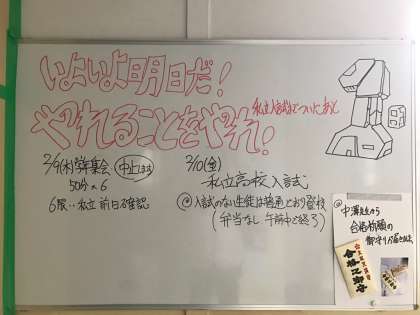 いよいよ明日だ!
やれることをやれ!
2/9(木) 学年集会 中止します
50分×6
6限‥私立 前日確認
2/10(金)
私立高校入試
◎入試のない生徒は普通どおり登校
(弁当なし 午前中で終了)
中澤先生から
合格祈願の
御守りが届きました
合格